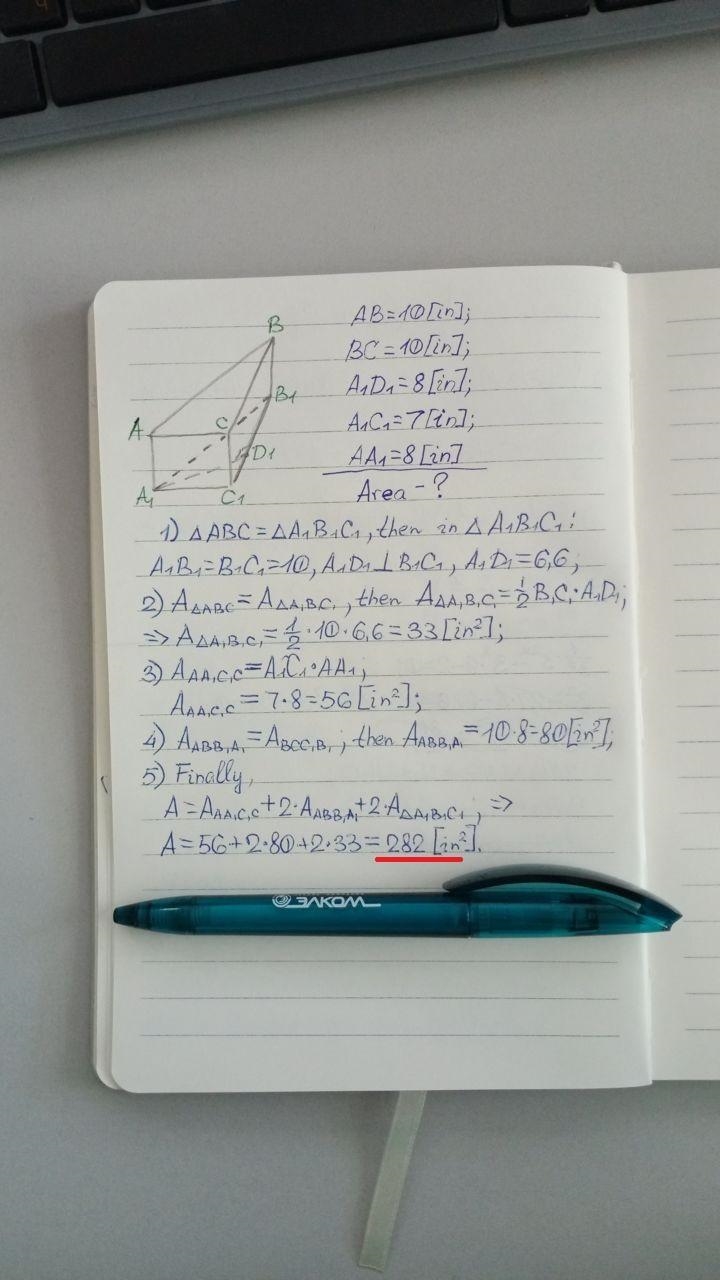 B
B₁
A
C
D₁
A₁
C₁
AB=10[in];
BC=10[in];
A₁D₁=8[in];
A₁C₁=7[in];
AA₁=8[in]
Area-?
1) △ABC=△A₁B₁C₁, then in △A₁B₁C₁:
A₁B₁=B₁C₁=10, A₁D₁⊥B₁C₁, A₁D₁=6,6;
2) A△ABC=A△A₁B₁C₁, then A△A₁B₁C₁=1/2 B₁C₁·A₁D₁;
=> A△A₁B₁C₁=1/2·10·6,6=33[in²];
3) AAA₁C₁C=A₁C₁·AA₁;
AAA₁C₁C=7·8=56[in²];
4) AABB₁A₁=ABCC₁B₁, then AABB₁A₁=10·8=80[in²];
5) Finally,
A=AAA₁C₁C+2·AABB₁A₁+2·A△A₁B₁C₁, =>
A=56+2·80+2·33=282[in²].
ЭЛКОМ